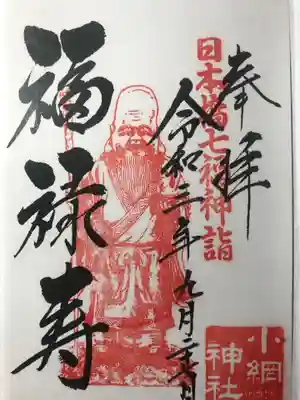 奉拝
日本橋七福神詣
令和三年九月二十七日
福禄寿
小網
神社